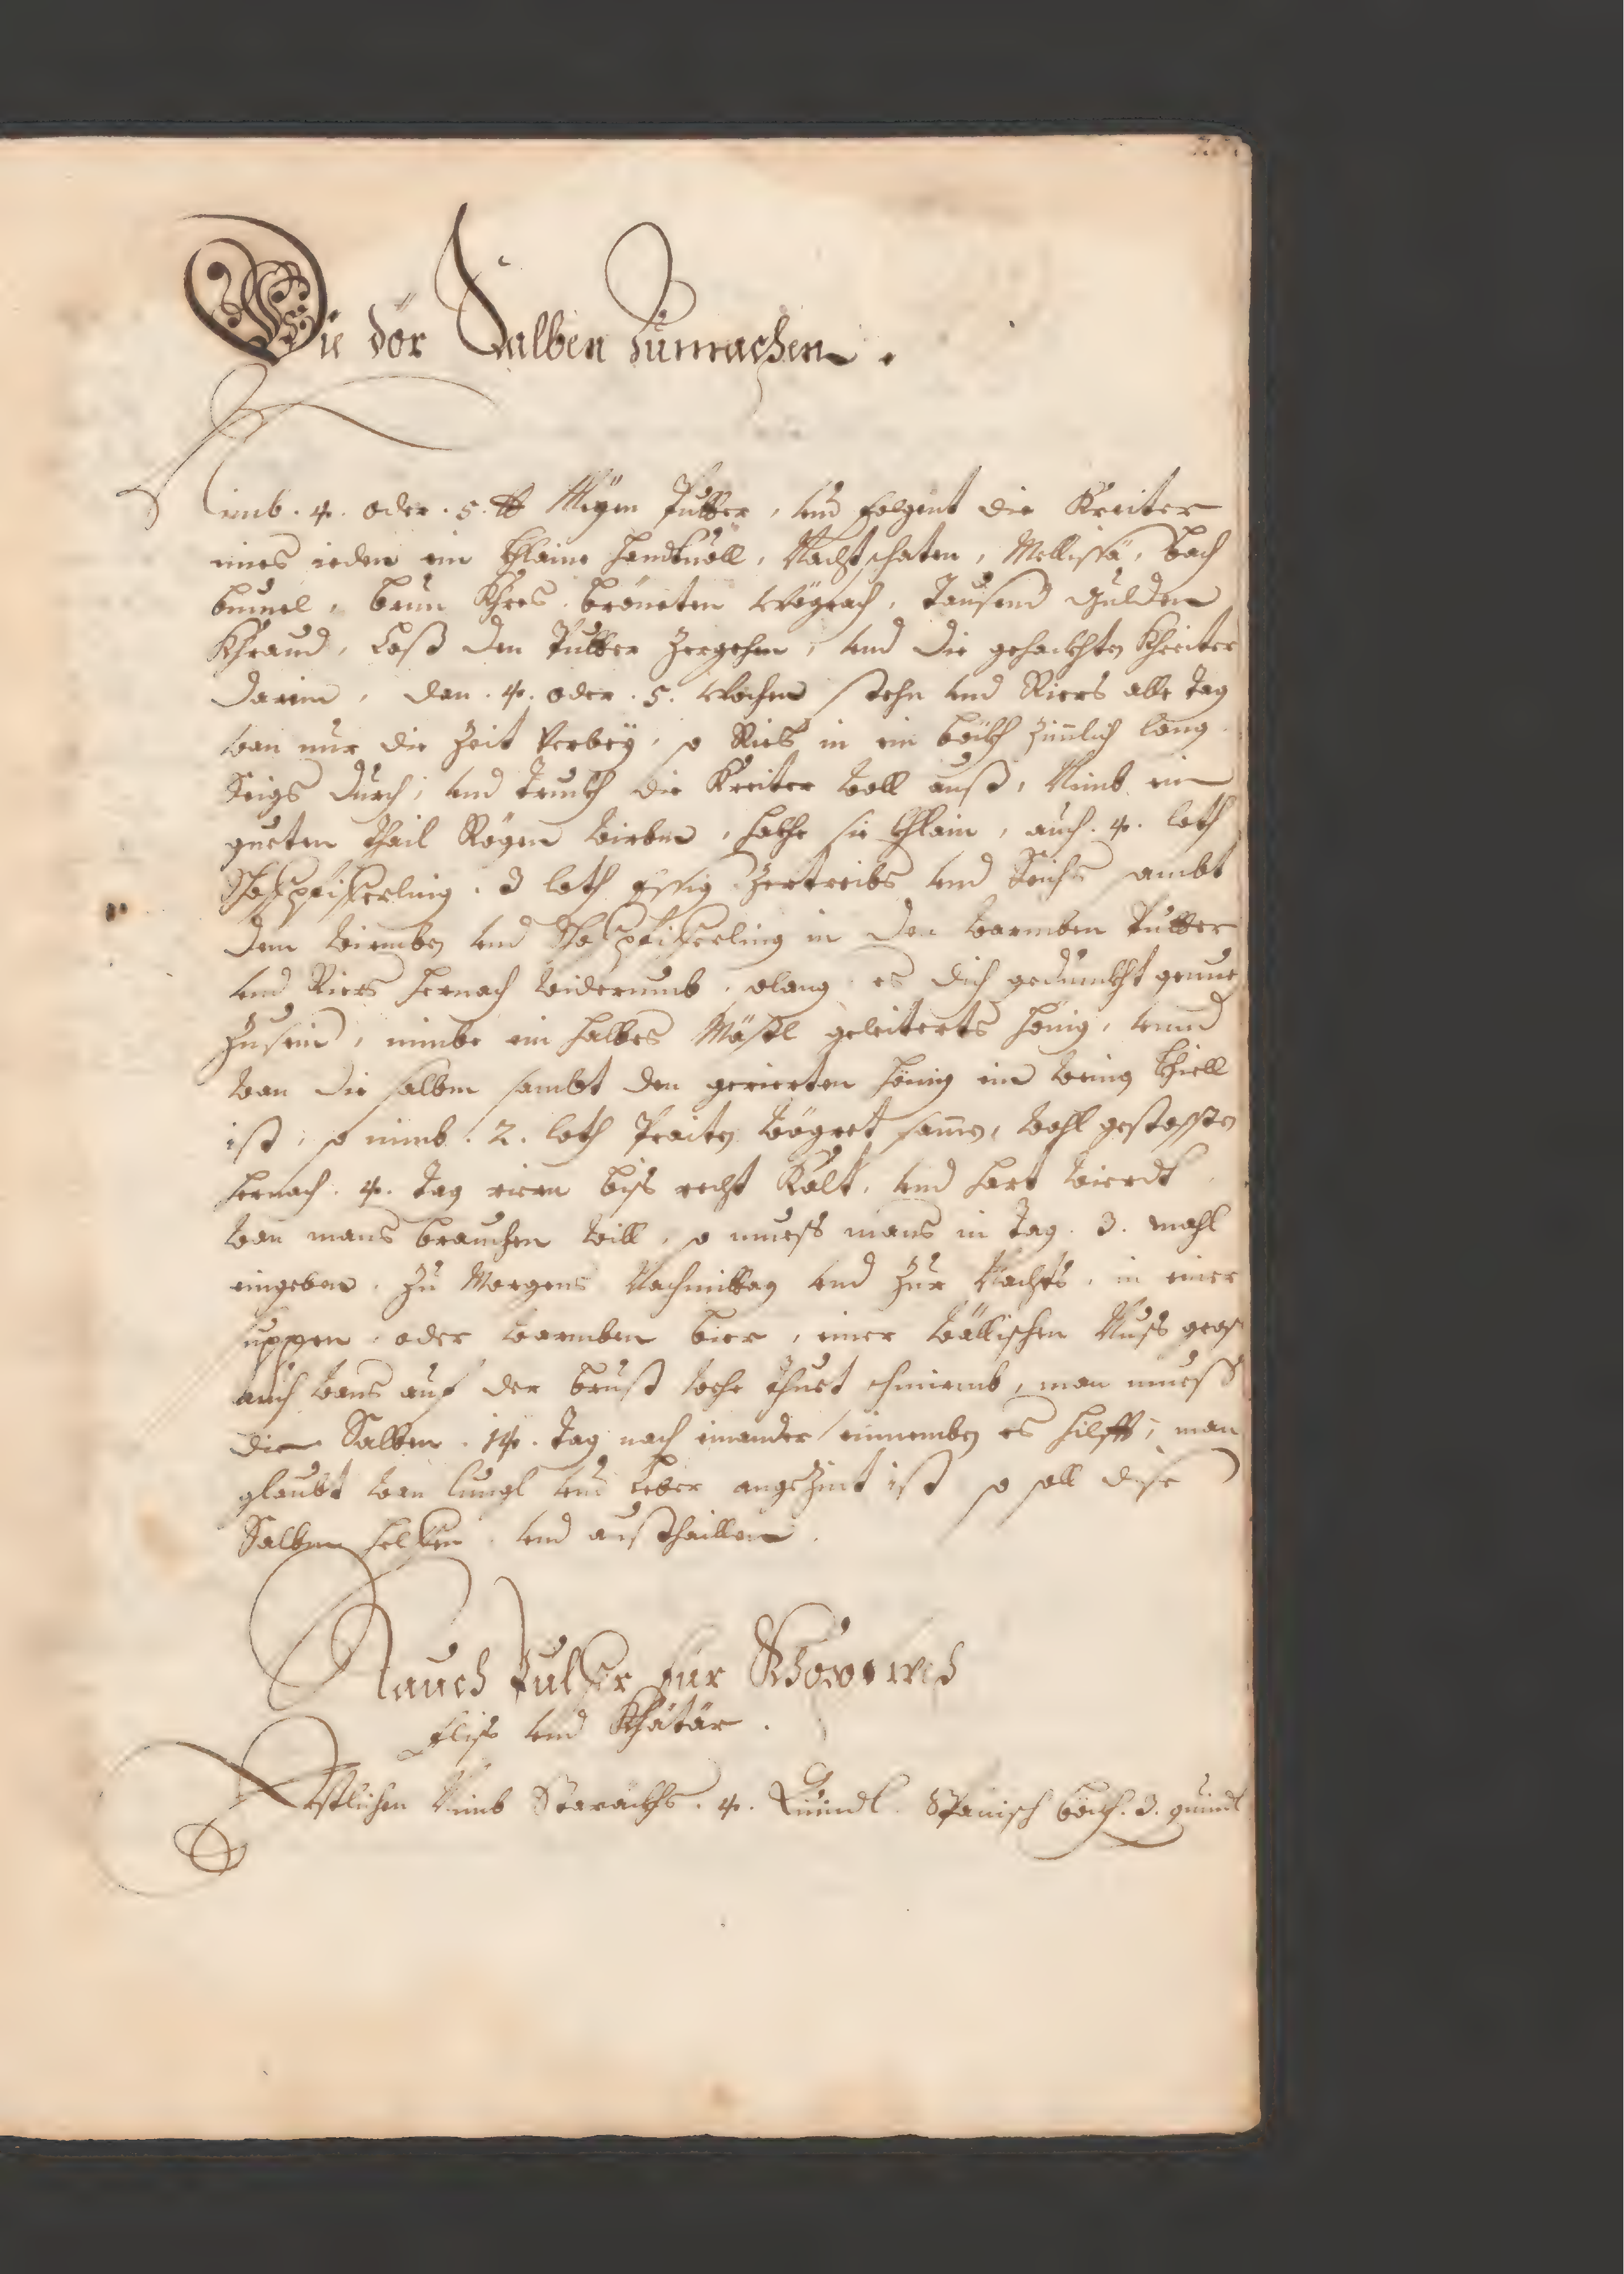 Wie dör Salben Zumachen.
Nimb. 4. oder. 5. ℔ Meyen Putter, und folgent die Kreiter
eines ieden ein khleine handtuöll, Nachtschaten, Mellissä, bach
bunnel, brun Khres. bröneten Wögrach, Tausend Gulden
Khraud, Laß den Putter Zergehen, und die gehackhten Khreiter
darein, dan. 4. oder. 5. Wochen stehn und Riers alle Tag
wan nur die Zeit verbey, so Ries in ein böckh Zimlich lang
Seigs durch, und Truckh die Kreiter woll auß, Nimb ein
gueten thail Rögen wirben, hackhe sie khlain, auch. 4. loth
3 loth Essig Zertreibs und Seichs sambt
den wirmben und in den warmben Putter
und Riers hernach widerumb, solang es dich gedunckht genue
Zusein, nimbe ein halbes Mäsl geleiterts hönig, unnd
wan die salben sambt den gerierten hönig ein wenig khiell
ist, so nimb. 2. loth Praiten wögret samen, wohl gestossen
hernach. 4. Tag riern biß recht Kalt, und hart wierdt
wan mans brauchen will, so muess mans in Tag. 3. mahl
eingeben. Zu Morgens Nachmittag und Zur Nachts, in einer
suppen, oder warmben bier, einer wällischen Nuss gros
auch wans auf der brust wehe thuet schmiernb, man muess
die Salben. 14. Tag nach einander einnemben es hilfft, man
glaubt wan lungl und leber angeZint ist so soll dise
Salben helffen, und austhaillen.
Rauch Pulfer für Khopfweh
fliss und Khätär.
Erstlichen Nimb Storäckhs. 4. Quindl. Spanisch 3. quindl